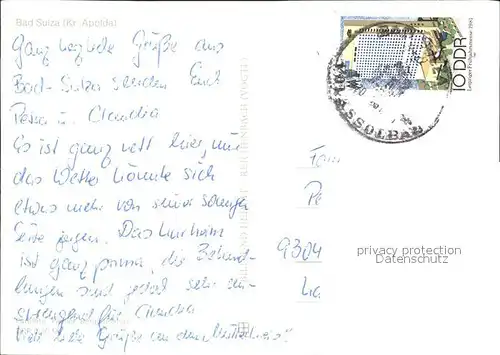 Bad Sulza (Kr. Apolda)
Ganz herzliche Grüße aus
Bad-Sulza senden Euch
Petra u. Claudia
Es ist ganz nett hier, nur
das Wetter könnte sich
etwas mehr von seiner sonnigen
Seite zeigen. Das Kurheim
ist ganz prima, die Behand-
lungen sind jedoch sehr an-
strengend für Claudia
Viele liebe Grüße an den
10 DDR
SOLBAD
Fam
Pe
9304
privacy protection
Datenschutz